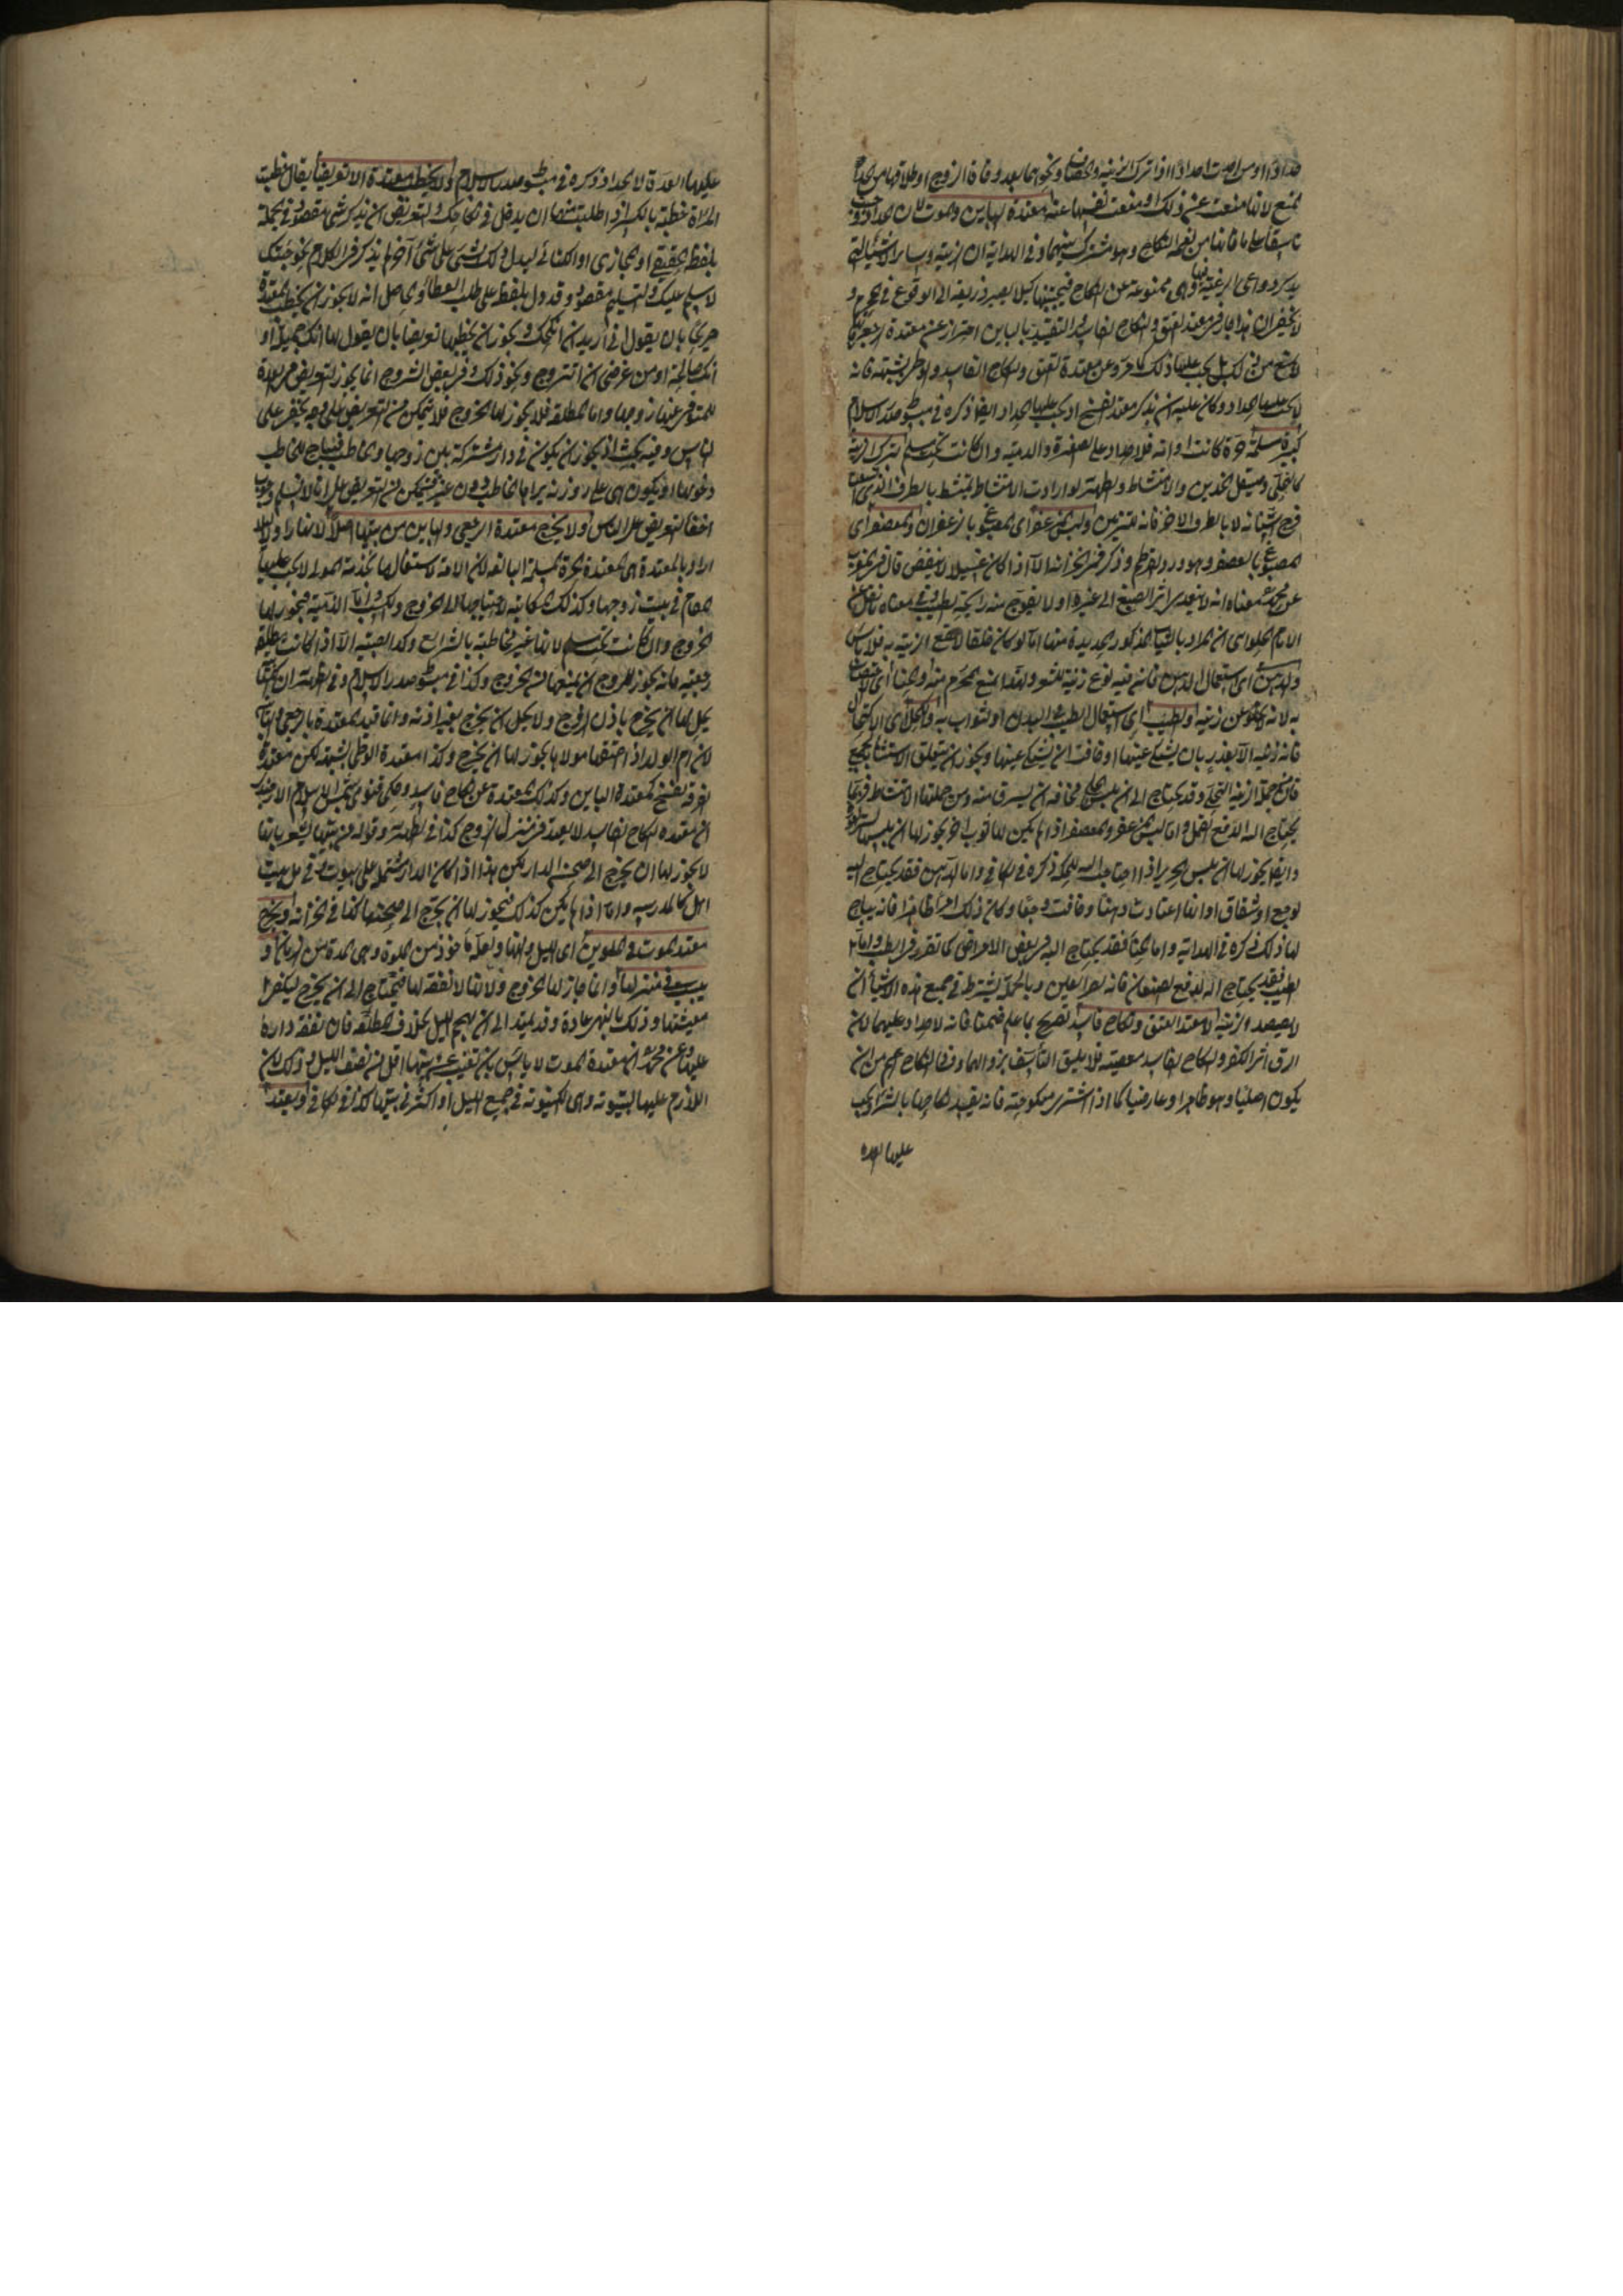 حدادا او من احدت احدادا اذا تركت الزينة والخضاب ونحوهما بعد وفاة الزوج او طلاقها من الحد
المنع لانها منعت عن ذلك او منعت نفسها عنه معتدة البائن والموت لان الحداد وجب
تاسفا على ما فاتها من نعمة النكاح وهو مشترك بينهما وفى الهداية ان الزينة وسائر الاشياء التى
دواعى الرغبة فيها وهى ممنوعة عن النكاح فتجتنبها كيلا يصير ذريعة الى الوقوع فى المحرم و
لا يخفى ان هذا جار فى معتدة العتق والنكاح الفاسد والتقييد بالبائن احتراز عن معتدة الرجعى
من ذلك بل يجب عليها ذلك كما مر وعن معتدة العتق والنكاح الفاسد والوطى بشبهة فانه
لا يجب عليها الحداد وكان عليه ان يذكر معتدة الفسخ اذ يجب عليها الحداد ايضا ذكره فى مبسوط صدر الاسلام
كبيرة مسلمة حرة كانت او امة فلا حداد على الصغيرة والذمية وان كانت تحت مسلم بترك الزينة
كالحلى وصيقل الخدين والامتشاط وفى الظهيرية لو ارادت الامتشاط تمتشط بالطرف الذى
فرج اسنانه لا بالطرف الاخر فانه للتزيين ولبس المزعفر اى المصبوغ بالزعفران والمعصفر اى
المصبوغ بالعصفر وهو ورد القرطم وذكر فى الخزانة الا اذا كان غسيلا لا ينفض قال فى المغرب
عن محمد معناه انه لا يتعدى اثر الصبغ الى غيره او لا يفوح منه رائحة الطيب وفى معناه نقل عن
الامام الحلوانى ان المراد بالثياب المذكور الجديدة منها اما لو كان خلقا لا يقع الزينة به فلا باس
والدهن اى استعمال الدهن فانه فيه نوع زينة للشعر ولهذا يمنع المحرم منه والحناء اى
به لانه لا يخلو عن زينة والطيب اى استعمال الطيب فى البدن او الثواب به والكحل اى الاكتحال
فانه زينة الا بعذر بان يشتكى عينها او خافت ان يشتكى عينها ويجوز ان يتعلق الاستثناء بالجميع
فان من جملة الزينة التحلى وقد يحتاج الى ان تلبس مخافة ان يسرق منه ومن جملتها الامتشاط فربما
يحتاج اليه لدفع القمل واما لبس المزعفر والمعصفر اذا لم يكن لها ثوب اخر يجوز لها ان تلبسه
وايضا يجوز لها ان تلبس الحرير اذا احتاجت اليه للحكة ذكره فى الكافى واما الدهن فقد يحتاج اليه
لوجع او شقاق او انها اعتادت دهنا وخافت وجعا وكان ذلك امرا ظاهرا فانه يباح
لها ذلك ذكره فى الهداية واما الحناء فقد يحتاج اليه فى بعض الامراض كما تقرر فى الطب واما
الطيب فقد يحتاج اليه لدفع الصنعان وبالجملة يشترط فى جميع هذه الاشياء ان
لا يقصد الزينة لا معتدة العتق ونكاح فاسد تصريح بما علم ضمنا فانه لا حداد عليهما لان
الرق اثر الكفر والنكاح الفاسد معصية فلا يليق التاسف بزوالهما وفى النكاح اعم من ان
يكون اصليا وهو ظاهر او عارضيا كما اذا اشترى منكوحته فانه يفسد نكاحها بالشراء يجب
عليها العدة
عليها العدة لا الحداد ذكره فى مبسوط صدر الاسلام ولا يخطب معتدة الا تعريضا يقال خطبت
المراة خطبة بالكسر اذا طلبت منها ان يدخل فى نكاحك والتعريض ان يذكر شى مقصود فى الجملة
بلفظه الحقيقى او المجازى او الكنائى ليدل ذلك الشى على شى آخر لم يذكر فى الكلام نحو جئتك
لاسلم عليك والتسليم مقصود وقد دل بلفظه على طلب العطاء والحاصل انه لا يجوز ان يخطب المعتدة
صريحا بان يقول انى اريد ان انكحك ويجوز ان يخطبها تعريضا بان يقول لها انك جميلة او
انك صالحة او من غرضى ان اتزوج ونحو ذلك وفى بعض الشروح انما يجوز التعريض فى العدة
للمتوفى عنها زوجها واما المطلقة فلا يجوز لها الخروج فلا يتمكن من التعريض على وجه يخفى على
الناس وفيه بحث اذ يجوز ان يكون فى دار مشتركة بين زوجها والخاطب فيباح للخاطب
دخولها او يكون هى على روزنة يراها الخاطب دون غيره فيتمكن من التعريض على انا لا نسلم وجوب
اخفاء التعريض على الناس ولا يخرج معتدة الرجعى والبائن من بيتها اصلا لا نهارا ولا ليلا
اراد بالمعتدة هى المعتدة الحرة المسلمة البالغة لان الامة لاشتغالها بخدمة المولى لا يجب عليها
المقام فى بيت زوجها وكذلك المكاتبة لاحتياجها الى الخروج والكسب واما الذمية فيجوز لها
الخروج وان كانت تحت مسلم لانها غير مخاطبة بالشرايع وكذا الصبية الا اذا كانت مطلقة
رجعية فانه يجوز للزوج ان يمنعها من الخروج وكذا فى مبسوط صدر الاسلام وفى الظهيرية ان
يحل لها ان يخرج باذن الزوج ولا يحل ان يخرج بغير اذنه وانما قيد المعتدة بالرجعى والبائن
لان ام الولد اذا اعتقها مولاها يجوز لها ان يخرج وكذا معتدة الوطى بشبهة لكن معتدة
الفرقة بفسخ كمعتدة البائن وكذلك المعتدة عن نكاح فاسد وحكى فتوى شمس الاسلام الاوزجندى
ان معتدة النكاح الفاسد لا يعتد فى منزل الزوج كذا فى الظهيرية وقوله من بيتها يشعر بانها
لا يجوز لها ان يخرج الى صحن الدار لكن هذا اذا كان الدار مشتملا على بيوت فى كل بيت
اهل كالمدرسة واما اذا لم يكن كذلك فيجوز لها ان يخرج الى صحنها كذا فى الخزانة ويخرج
معتدة الموت فى الملوين اى الليل والنهار ولعله ماخوذ من الملوة وهى المدة من الزمان و
يبيت فى منزلها وانما جاز لها الخروج ولانها لا نفقة لها فيحتاج الى ان يخرج ليكفى
معيشتها وذلك بالنهار عادة وقد يمتد الى ان يهجم الليل بخلاف المطلقة فان نفقة دارة
عليها وعن محمد ان معتدة الموت لا باس بان تغيب عن بيتها اقل من نصف الليل وذلك لان
اللازم عليها البيتوتة وهى الكينونة فى جميع الليل او اكثره فى بيتها كذا فى الكافى ويعتد